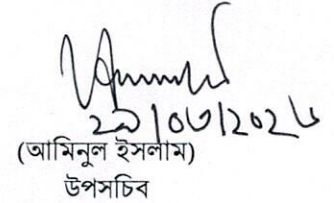 ২৯/০৩/২০২৬
(আমিনুল ইসলাম)
উপসচিব